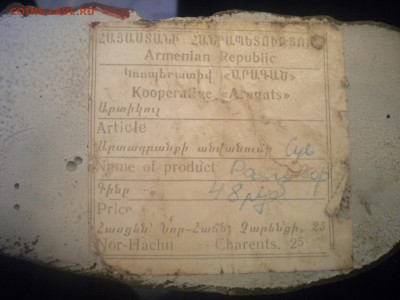 ՀԱՅԱՍՏԱՆԻ ՀԱՆՐԱՊԵՏՈՒԹՅՈՒՆ
Armenian Republic
Կոոպերատիվ «ԱՐԱԳԱԾ»
Kooperative «Aragats»
Արտիկուլ
Article
Արտադրանքի անվանումը
Name of product
Գինը 48
Price
Հասցեն՝ Նոր-Հաճն, Չարենցի, 25
Nor-Hachn Charents, 25